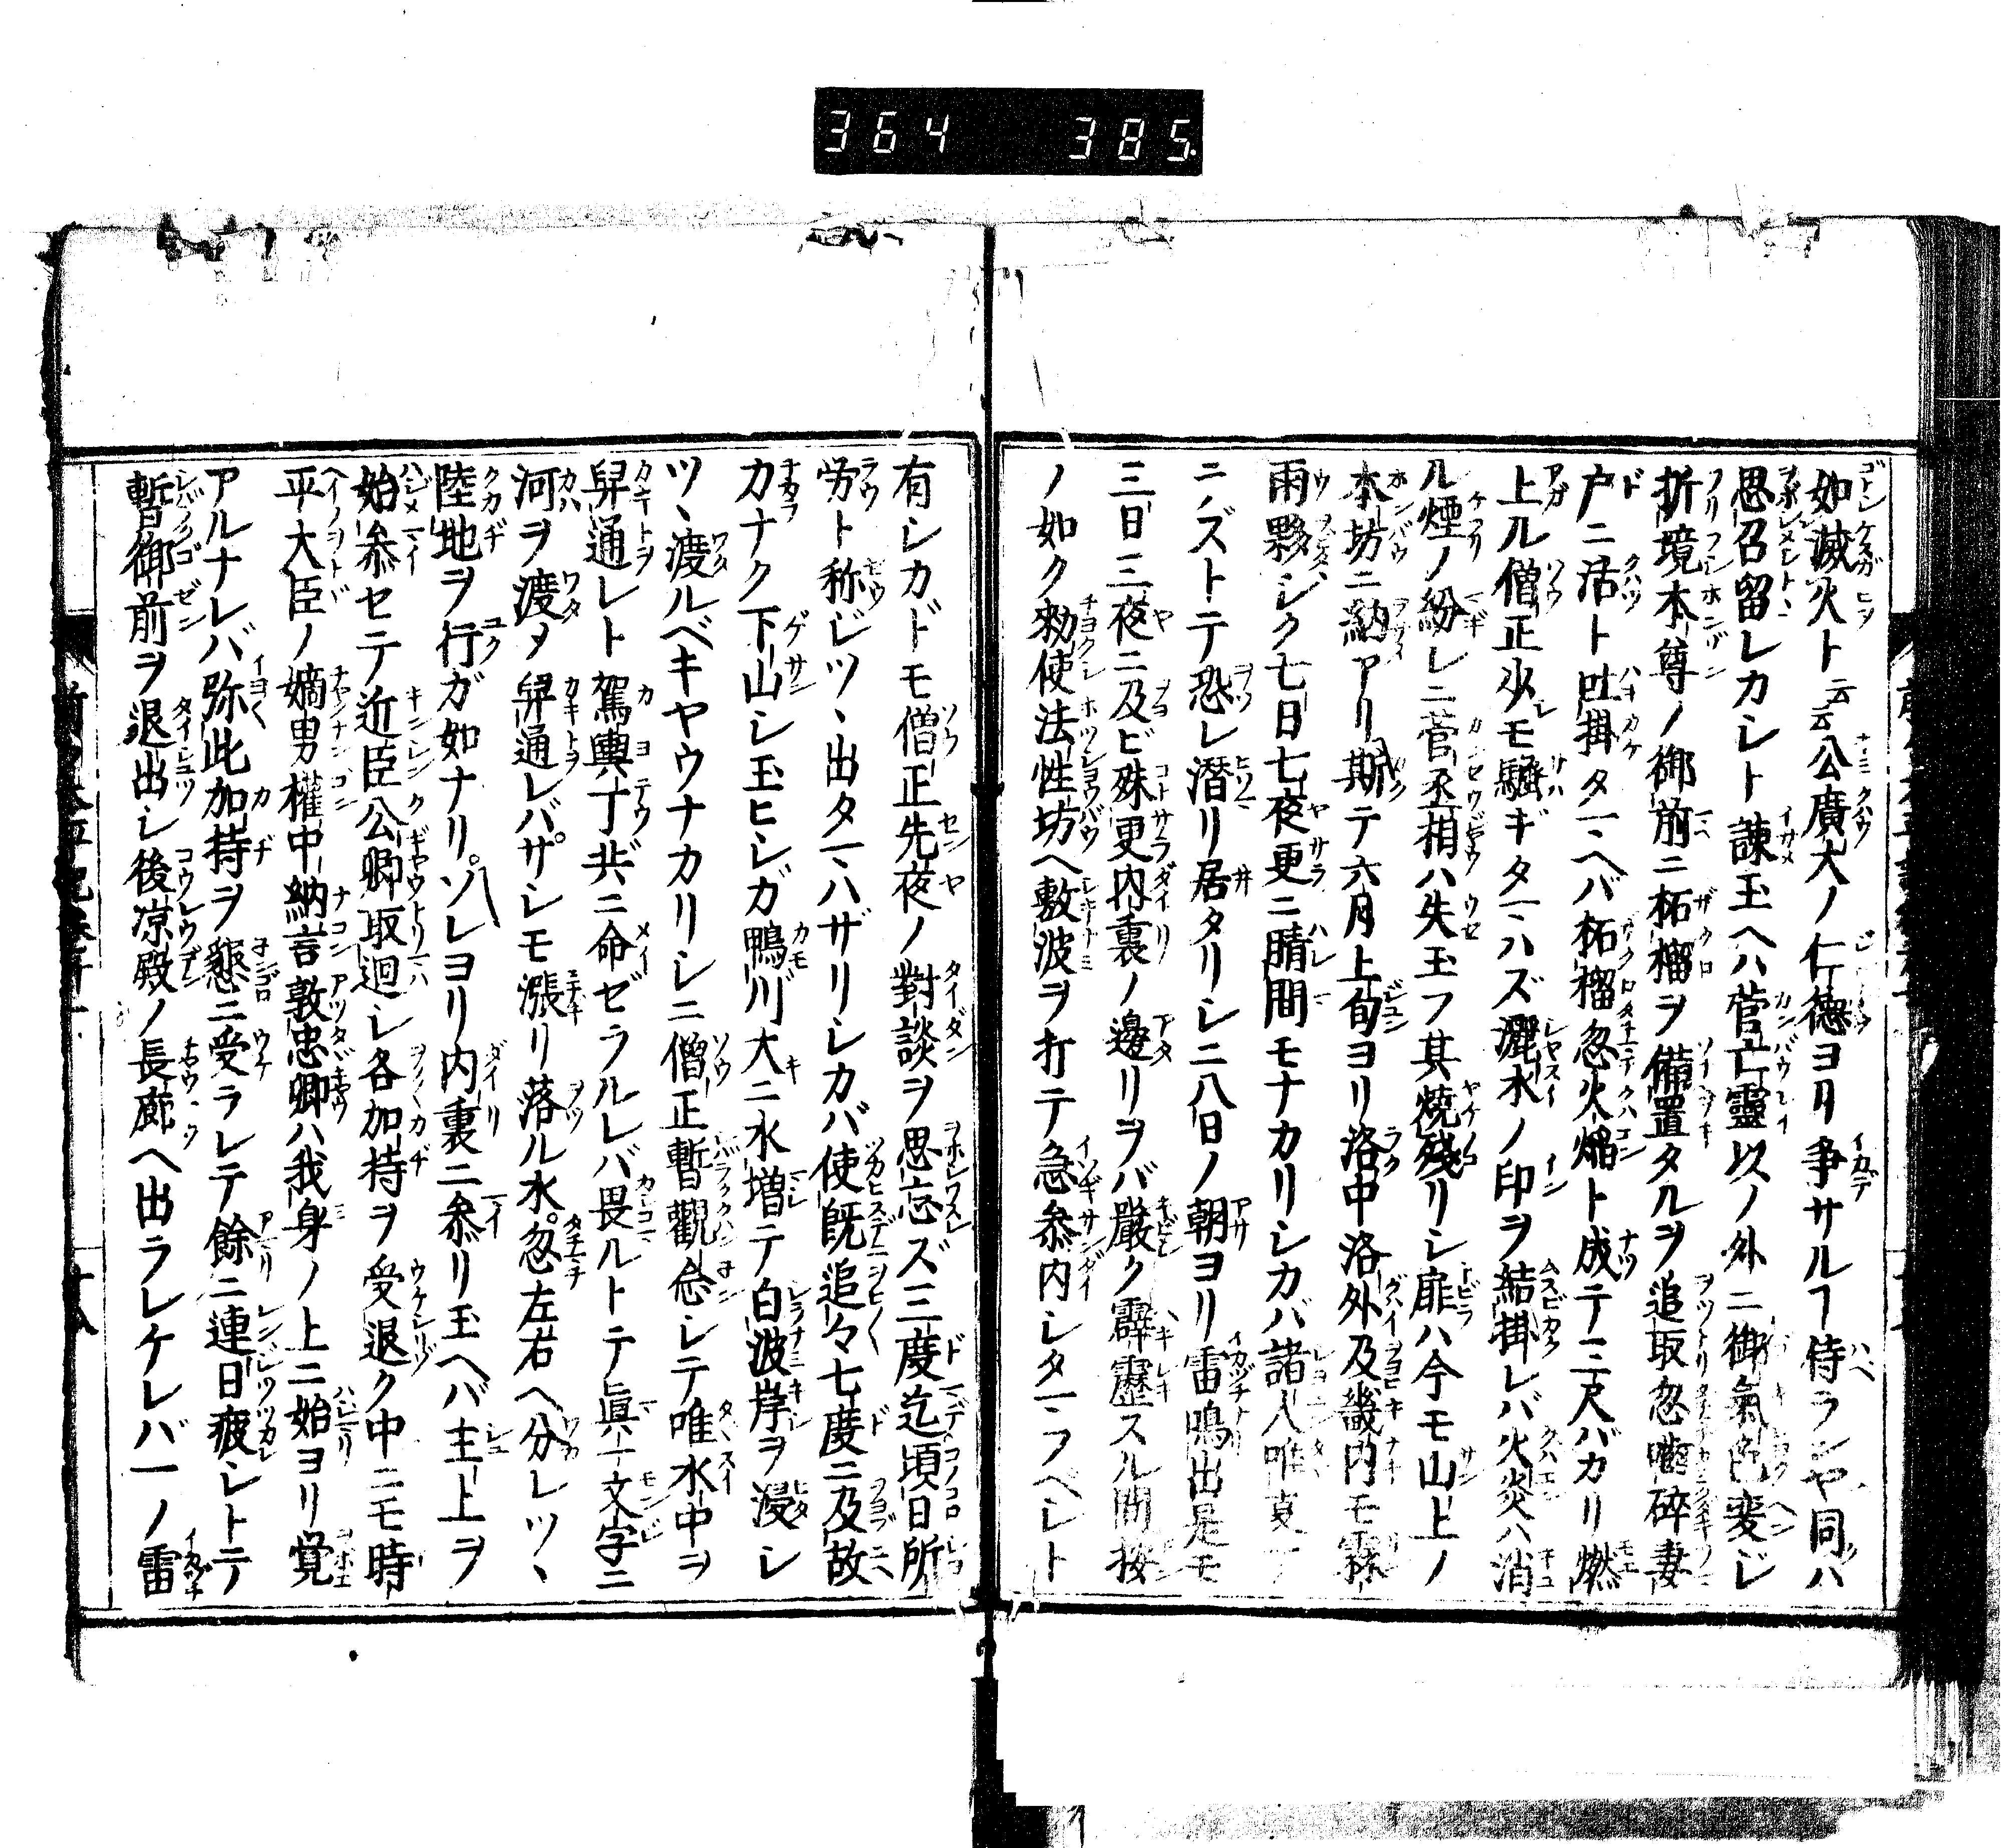 364 385
如滅火ト云云公廣大ノ仁德ヨリ争サルヿ侍ランヤ同ハ
思召留レカシト諫玉ヘハ菅亡靈以ノ外ニ御氣色変ジ
折境本尊ノ御前ニ柘榴ヲ備置タルヲ追取忽嚙碎妻
戸ニ活ト吐掛タマヘバ柘榴忽火焔ト成テ三尺バカリ燃
上ル僧正少モ騒ギタマハズ灑水ノ印ヲ結掛レバ火炎ハ消
ル煙ノ紛レニ菅丞相ハ失玉フ其燒残リシ扉ハ今モ山上ノ
本坊ニ納アリ斯テ六月上旬ヨリ洛中洛外及畿内モ霖
雨夥シク七日七夜更ニ晴間モナカリシカバ諸人唯
ニノズトテ恐レ潜リ居タリシニ八日ノ朝ヨリ雷鳴出是モ
三日三夜ニ及ビ殊更内裏ノ邊リヲバ嚴ク霹靂スル間按
ノ如ク勅使法性坊ヘ敷波ヲ打テ急参内シタマフベレト
有シカドモ僧正先夜ノ對談ヲ思忘ズ三度迄頃日所
労ト称レツヽ出タマハザリシカバ使既追々七度ニ及故
カナク下山シ玉ヒシガ鴨川大ニ水増テ白波岸ヲ浸シ
ツヽ渡ルベキヤウナカリシニ僧正暫觀念シテ唯水中ヲ
舁通レト駕輿丁共ニ命ゼラルレバ畏ルトテ眞一文字ニ
河ヲ渡タ舁通レバサシモ漲リ落ル水忽左右ヘ分レツヽ
陸地ヲ行ガ如ナリソレヨリ内裏ニ参リ玉ヘバ主上ヲ
始参セテ近臣公卿取迴シ各加持ヲ受退ク中ニモ時
平大臣ノ嫡男權中納言敦忠卿ハ我身ノ上ニ始ヨリ覚
アルナレバ弥此加持ヲ懇ニ受ラレテ餘ニ連日疲シトテ
暫御前ヲ退出シ後凉殿ノ長廊ヘ出ラレケレバ一ノ雷